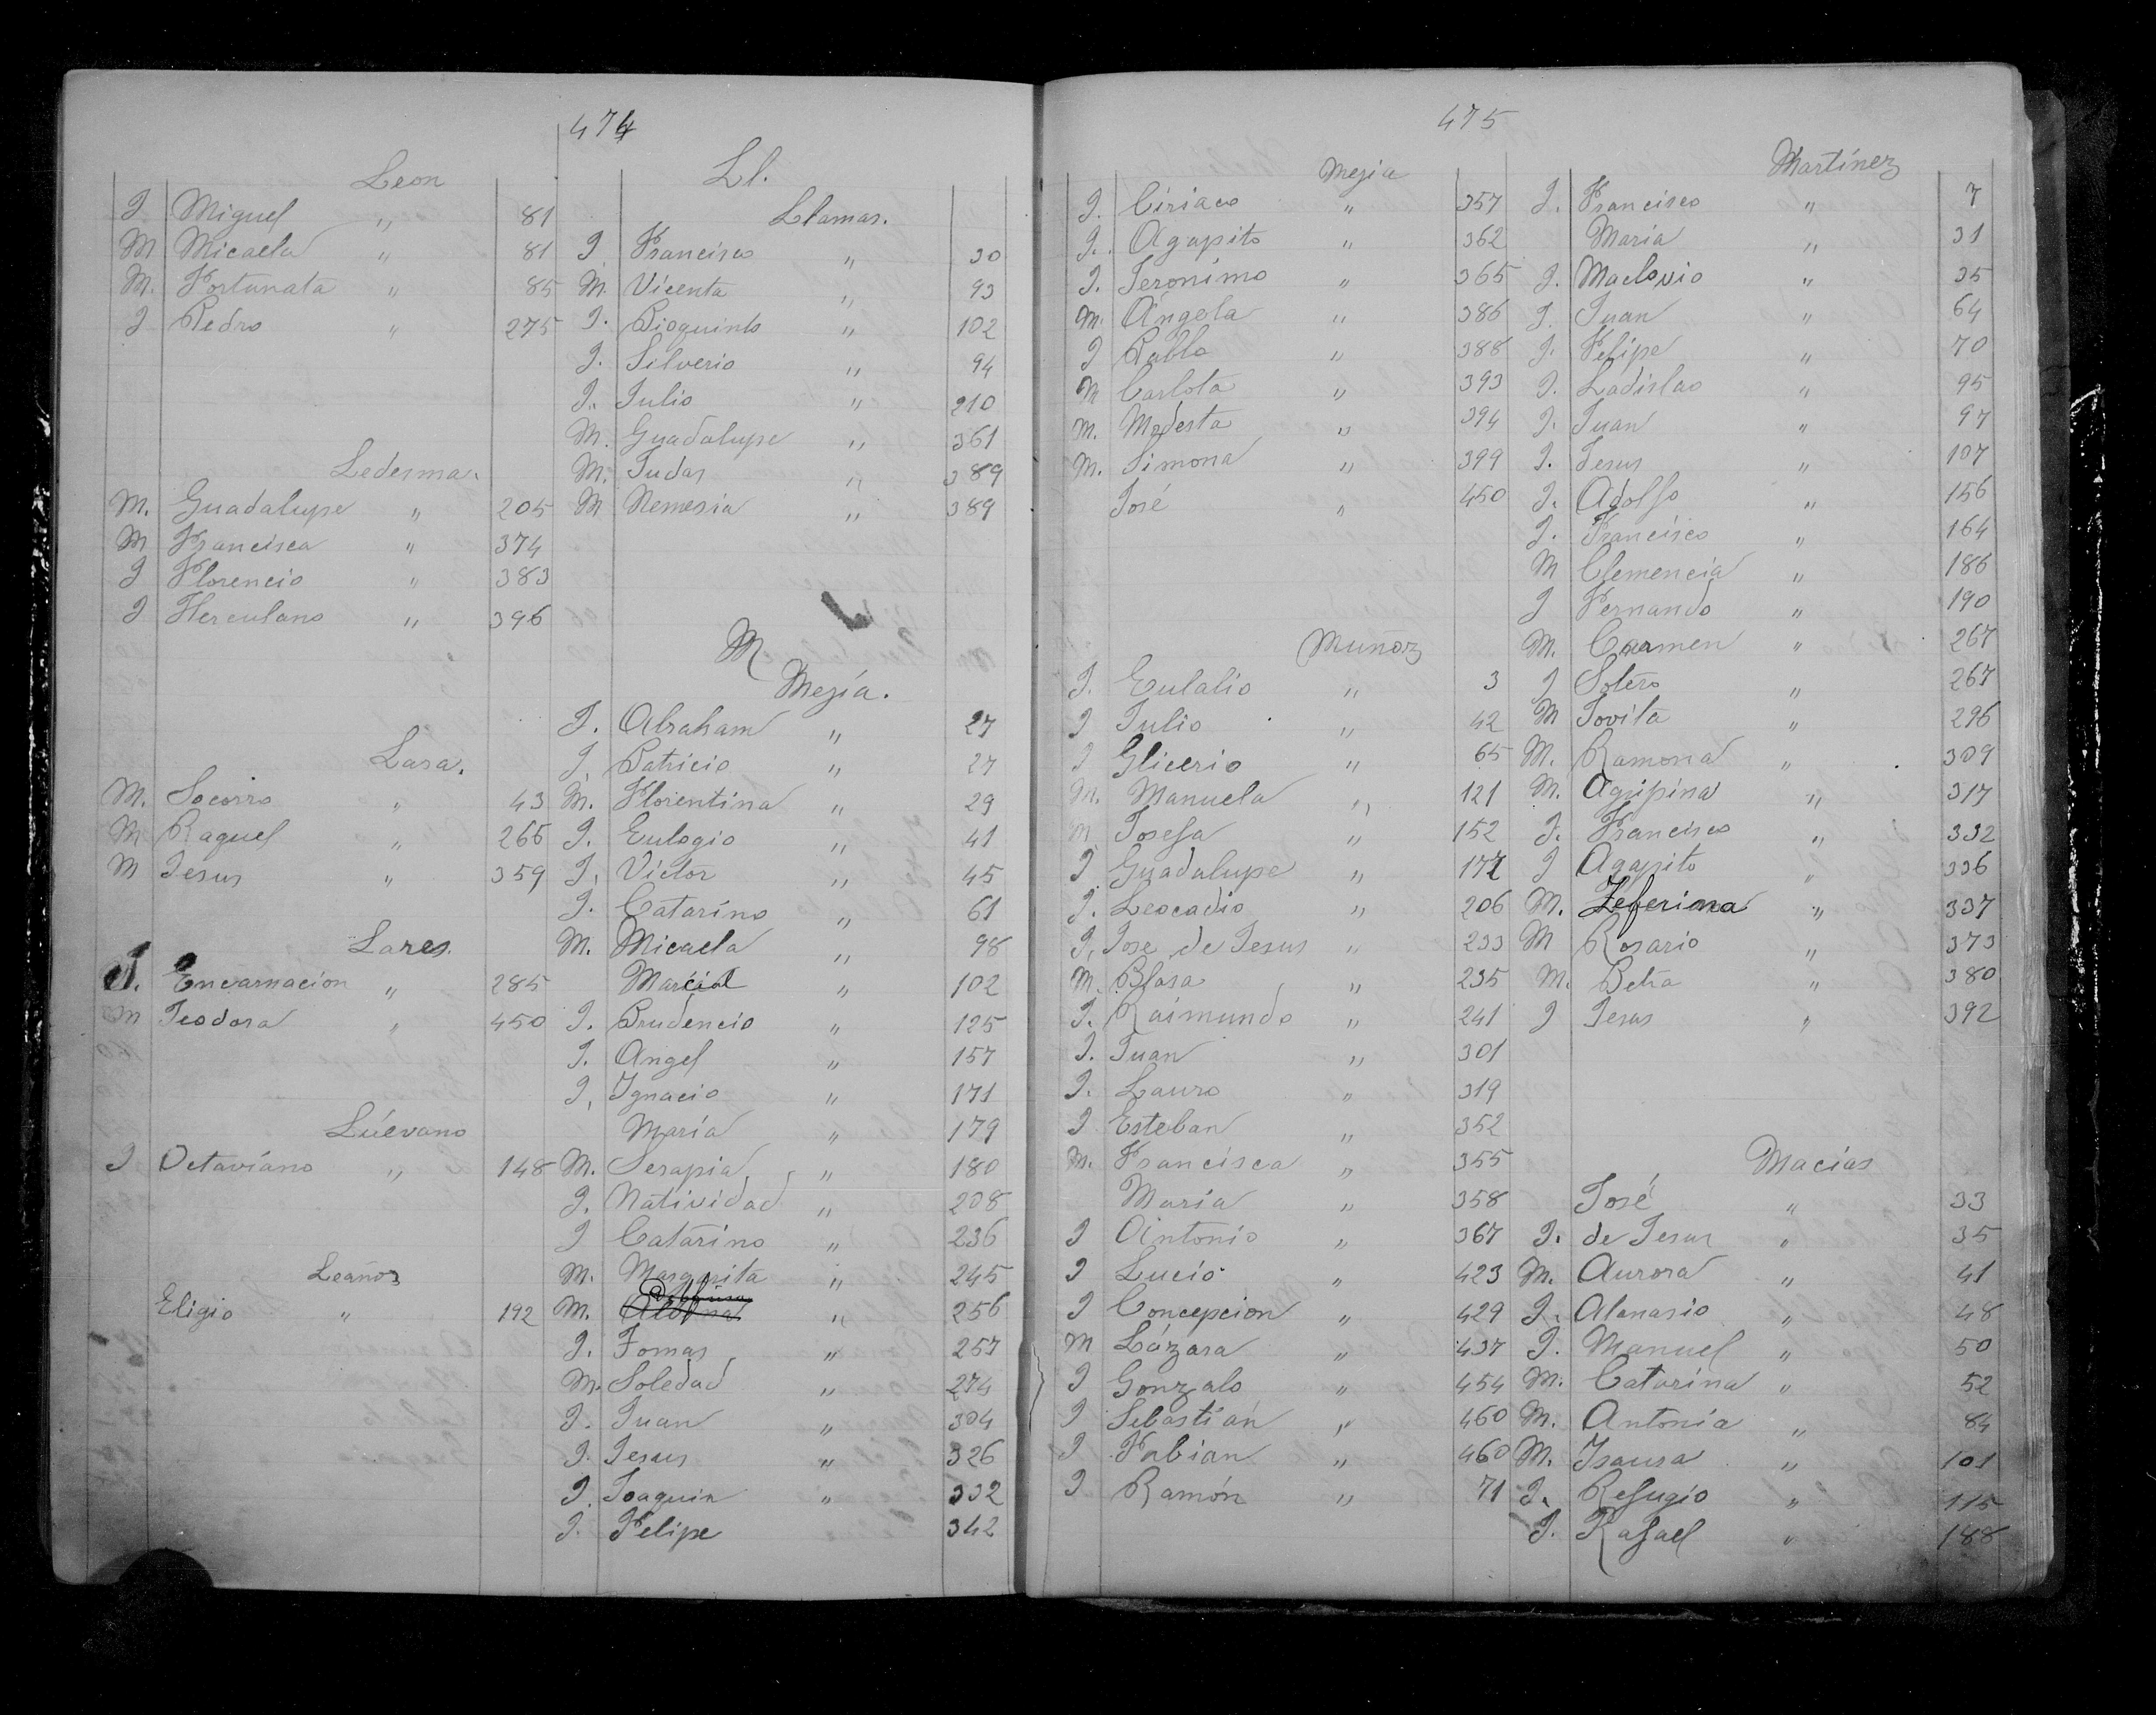 474
Leon
J Miguel " 81
M Micaela " 81
M. Fortunata " 85
J Pedro " 275
Ledesma.
M. Guadalupe " 205
M Francisca " 374
J Florencio " 383
J Herculano " 396
Lara.
M. Socorro " 43
M Raquel " 265
M Jesus " 359
Lares.
J. Encarnacion " 285
M Teodora " 450
Lúevano
J Octaviano " 148
Leaños
Eligio " 192
Ll.
Llamas.
J Francisco " 30
M. Vicenta " 93
J. Pioquinto " 102
J. Silverio " 94
J. Julio " 210
M. Guadalupe " 361
M. Judas " 389
M Nemesia " 389
M
Mejía.
J. Abraham " 27
J. Patricio " 27
M. Florentina " 29
J. Eulogio " 41
J. Victor " 45
J. Catarino " 61
M. Micaela " 98
Marcial " 102
J. Prudencio " 125
J. Angel " 157
J, Ignacio " 171
María " 179
M. Serapia " 180
J. Natividad " 208
J Catarino " 236
M. Margarita " 245
M. " 256
J. Tomas " 257
M. Soledad " 274
J. Juan " 304
J. Jesus " 326
J. Joaquin " 332
J. Felipe 342
475
Mejia
J. Ciriaco " 357
J. Agapito " 362
J. Jeronimo " 365
M. Ángela " 386
J Pablo " 388
M Carlota " 393
M. Modesta " 394
M. Simona " 399
José " 450
Munoz
J. Eulalio " 3
J Julio " 42
J Glicerio " 65
M. Manuela " 121
M Josefa " 152
J Guadalupe " 177
J. Leocadio " 206
J, Jose de Jesus " 233
M. Blasa " 235
J. Raimundo " 241
J. Juan " 301
J. Lauro " 319
J Esteban " 352
M. Francisca " 355
Maria " 358
J Antonio " 367
J Lucio " 423
J Concepcion " 429
M Lázara " 437
J Gonzalo " 454
J Sebastián " 460
J Fabian " 460
J Ramón " 71
Martínez
J. Francisco " 7
Maria " 31
J. Maclovio " 35
J. Juan " 64
J. Felipe " 70
J. Ladislao " 95
J. Juan " 97
J. Jesus " 107
J. Adolfo " 156
J. Francisco " 164
M Clemencia " 186
J Fernando " 190
M. Carmen " 267
J Sotero " 267
M Jovita " 296
M. Ramona " 309
M. Agripina " 317
J. Francisco " 332
J Agapito " 336
M. Zeferina " 337
M Rosario " 373
M. Petra " 380
J Jesus " 392
Macías
José " 33
J. de Jesus " 35
M. Aurora " 41
J. Atanasio " 48
J. Manuel " 50
M. Catarina " 52
M. Antonia " 84
M. Isaura " 101
J. Refugio " 115
J. Rafael " 188